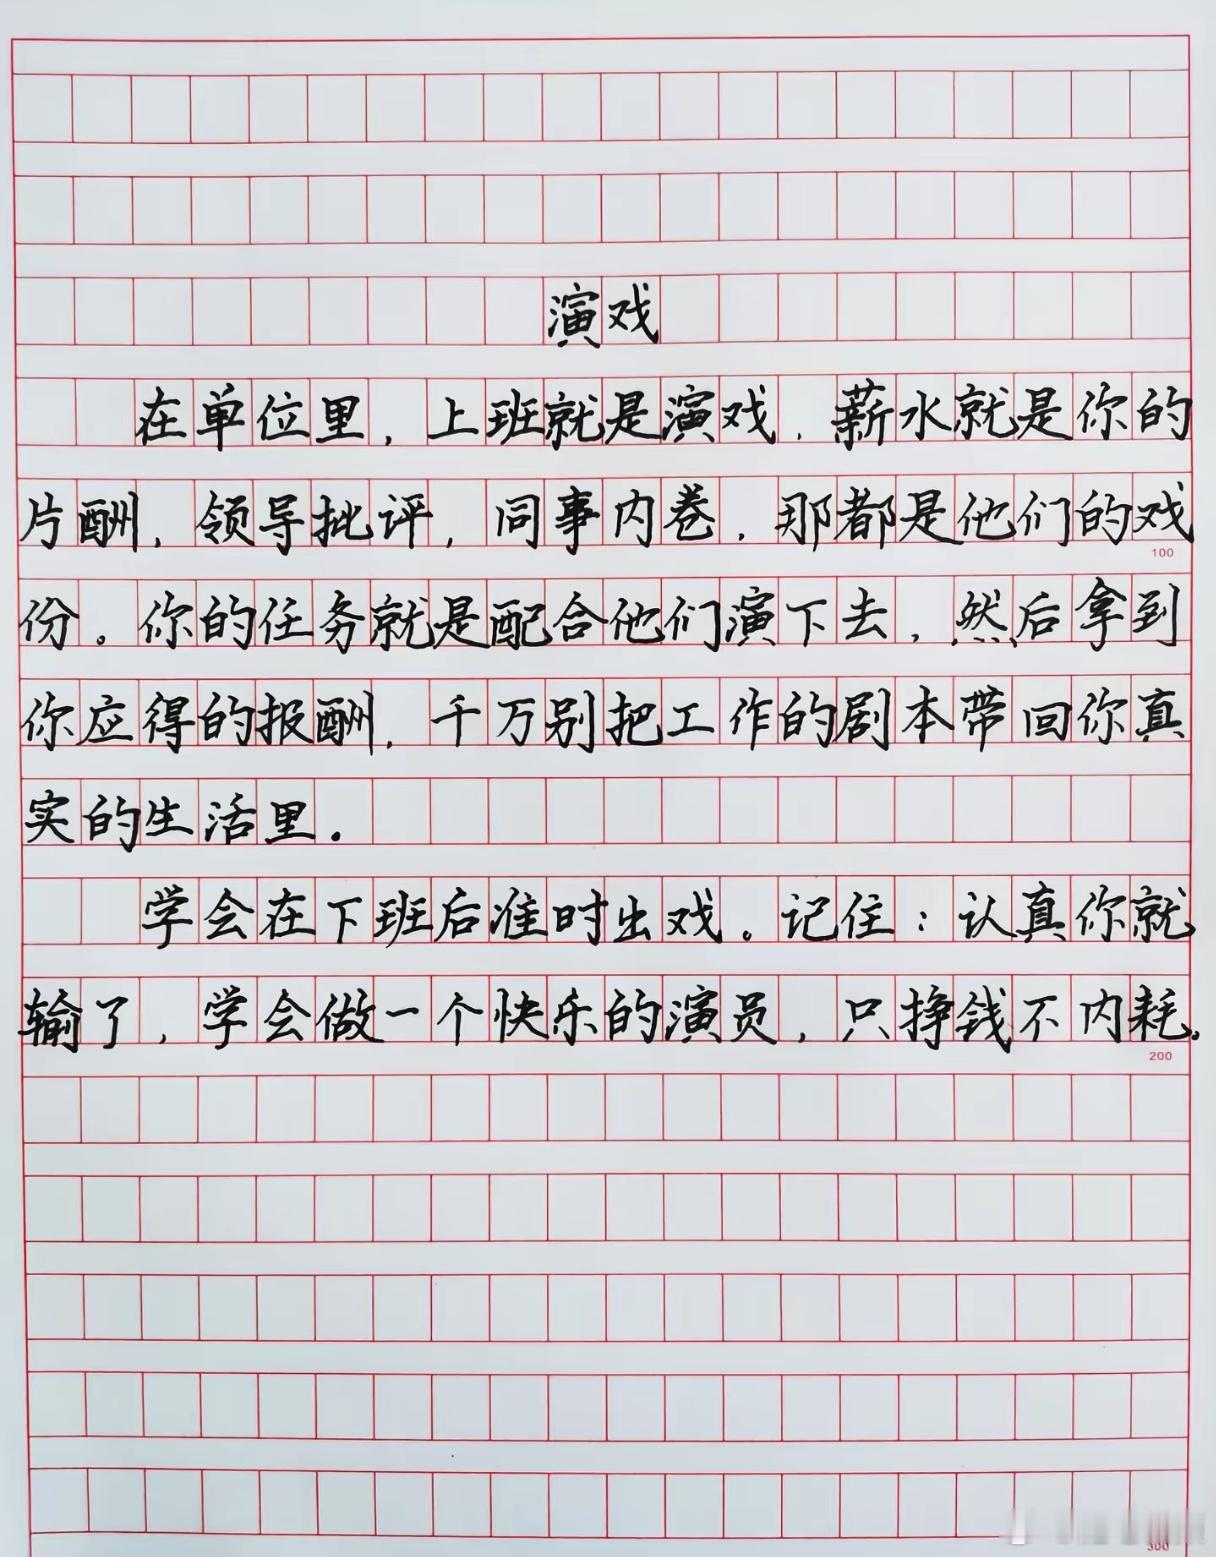 演戏
在单位里，上班就是演戏，薪水就是你的
片酬，领导批评，同事内卷，那都是他们的戏
100
份。你的任务就是配合他们演下去，然后拿到
你应得的报酬，千万别把工作的剧本带回你真
实的生活里。
学会在下班后准时出戏。记住：认真你就
输了，学会做一个快乐的演员，只挣钱不内耗。
200
300